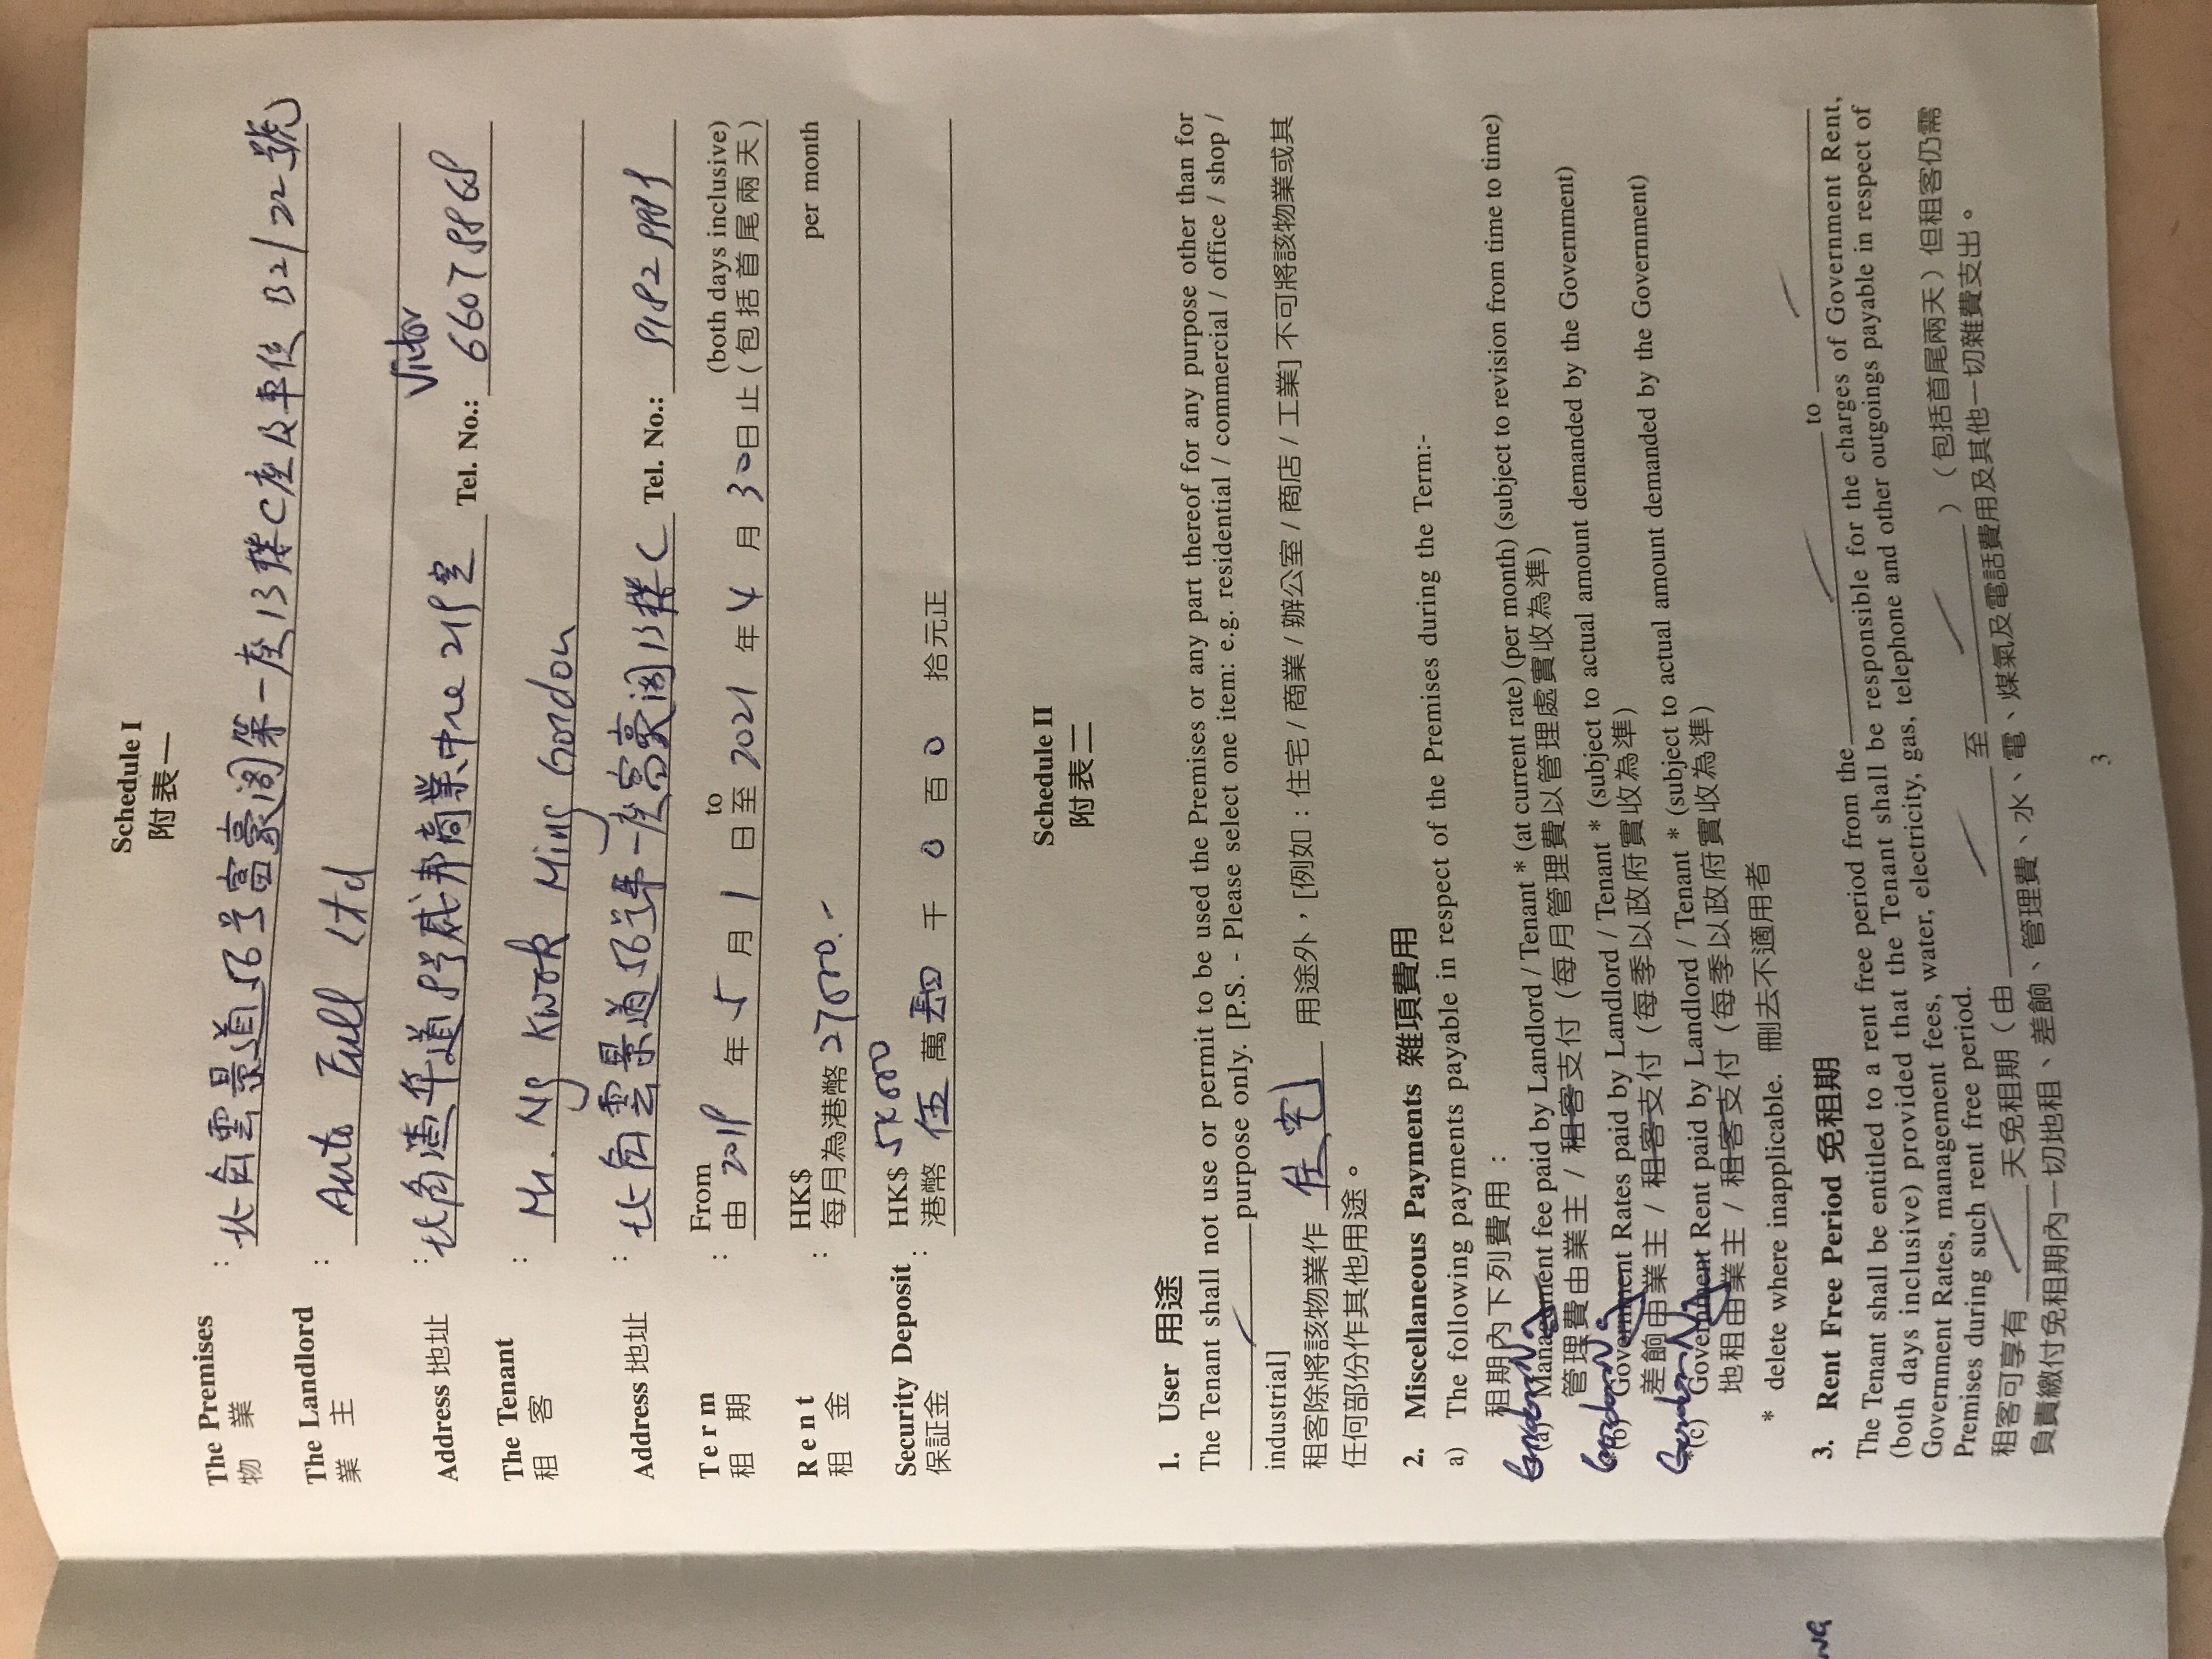 Schedule I
附表一
The Premises : 北角雲景道56号富豪阁第一座13楼C座及车位B2/22号
物業
The Landlord : Auto Full Ltd
業主
Victor
Address 地址 : 北角 道 号威邦商業中心 室 Tel. No.: 6607
The Tenant : Mr. Ng Kwok Ming Gordon
租客
Address 地址 : 北角雲景道56号第一座富豪阁13楼C Tel. No.:
Term : From to (both days inclusive)
租期 由 年 5 月 1 日至 2021 年 4 月 30 日止(包括首尾兩天)
Rent : HK$ per month
租金 每月為港幣 27000.-
Security Deposit : HK$ 54000
保証金 港幣 伍 萬 四 千 0 百 0 拾元正
Schedule II
附表二
1. User 用途
The Tenant shall not use or permit to be used the Premises or any part thereof for any purpose other than for
purpose only. [P.S. - Please select one item: e.g. residential / commercial / office / shop /
industrial]
租客除將該物業作 住宅 用途外,[例如:住宅 / 商業 / 辦公室 / 商店 / 工業] 不可將該物業或其
任何部份作其他用途。
2. Miscellaneous Payments 雜項費用
a) The following payments payable in respect of the Premises during the Term:-
租期內下列費用:
*(a) Management fee paid by Landlord / Tenant * (at current rate) (per month) (subject to revision from time to time)
管理費由業主 / 租客支付 (每月管理費以管理處實收為準)
*(b) Government Rates paid by Landlord / Tenant * (subject to actual amount demanded by the Government)
差餉由業主 / 租客支付 (每季以政府實收為準)
*(c) Government Rent paid by Landlord / Tenant * (subject to actual amount demanded by the Government)
地租由業主 / 租客支付 (每季以政府實收為準)
* delete where inapplicable. 刪去不適用者
3. Rent Free Period 免租期
The Tenant shall be entitled to a rent free period from the to
(both days inclusive) provided that the Tenant shall be responsible for the charges of Government Rent,
Government Rates, management fees, water, electricity, gas, telephone and other outgoings payable in respect of
Premises during such rent free period.
租客可享有 天免租期(由 至 )(包括首尾兩天)但租客仍需
負責繳付免租期內一切地租、差餉、管理費、水、電、煤氣及電話費用及其他一切雜費支出。
3